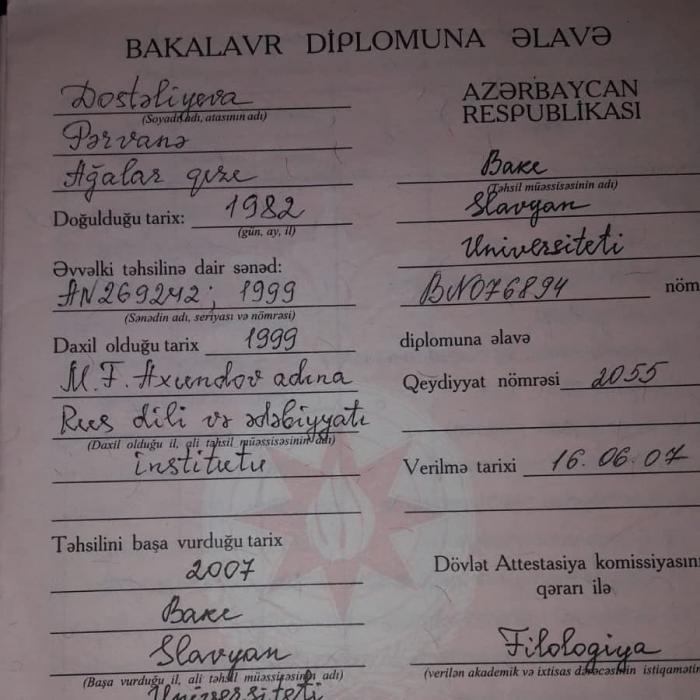 BAKALAVR DİPLOMUNA ƏLAVƏ
Dostəliyeva
(Soyadı, adı, atasının adı)
Pərvanə
Ağalar qızı
Doğulduğu tarix: 1982
(gün, ay, il)
Əvvəlki təhsilinə dair sənəd:
AN269242; 1999
(Sənədin adı, seriyası və nömrəsi)
Daxil olduğu tarix 1999
M.F. Axundov adına
Rus dili və ədəbiyyatı
(Daxil olduğu il, ali təhsil müəssisəsinin adı)
institutu
Təhsilini başa vurduğu tarix
2007
Bakı
Slavyan
(Başa vurduğu il, ali təhsil müəssisəsinin adı)
Universiteti
AZƏRBAYCAN
RESPUBLİKASI
Bakı
(Təhsil müəssisəsinin adı)
Slavyan
Universiteti
BN076894 nöm
diplomuna əlavə
Qeydiyyat nömrəsi 2055
Verilmə tarixi 16.06.07
Dövlət Attestasiya komissiyasın
qərarı ilə
Filologiya
(verilən akademik və ixtisas dərəcəsinin istiqamətin